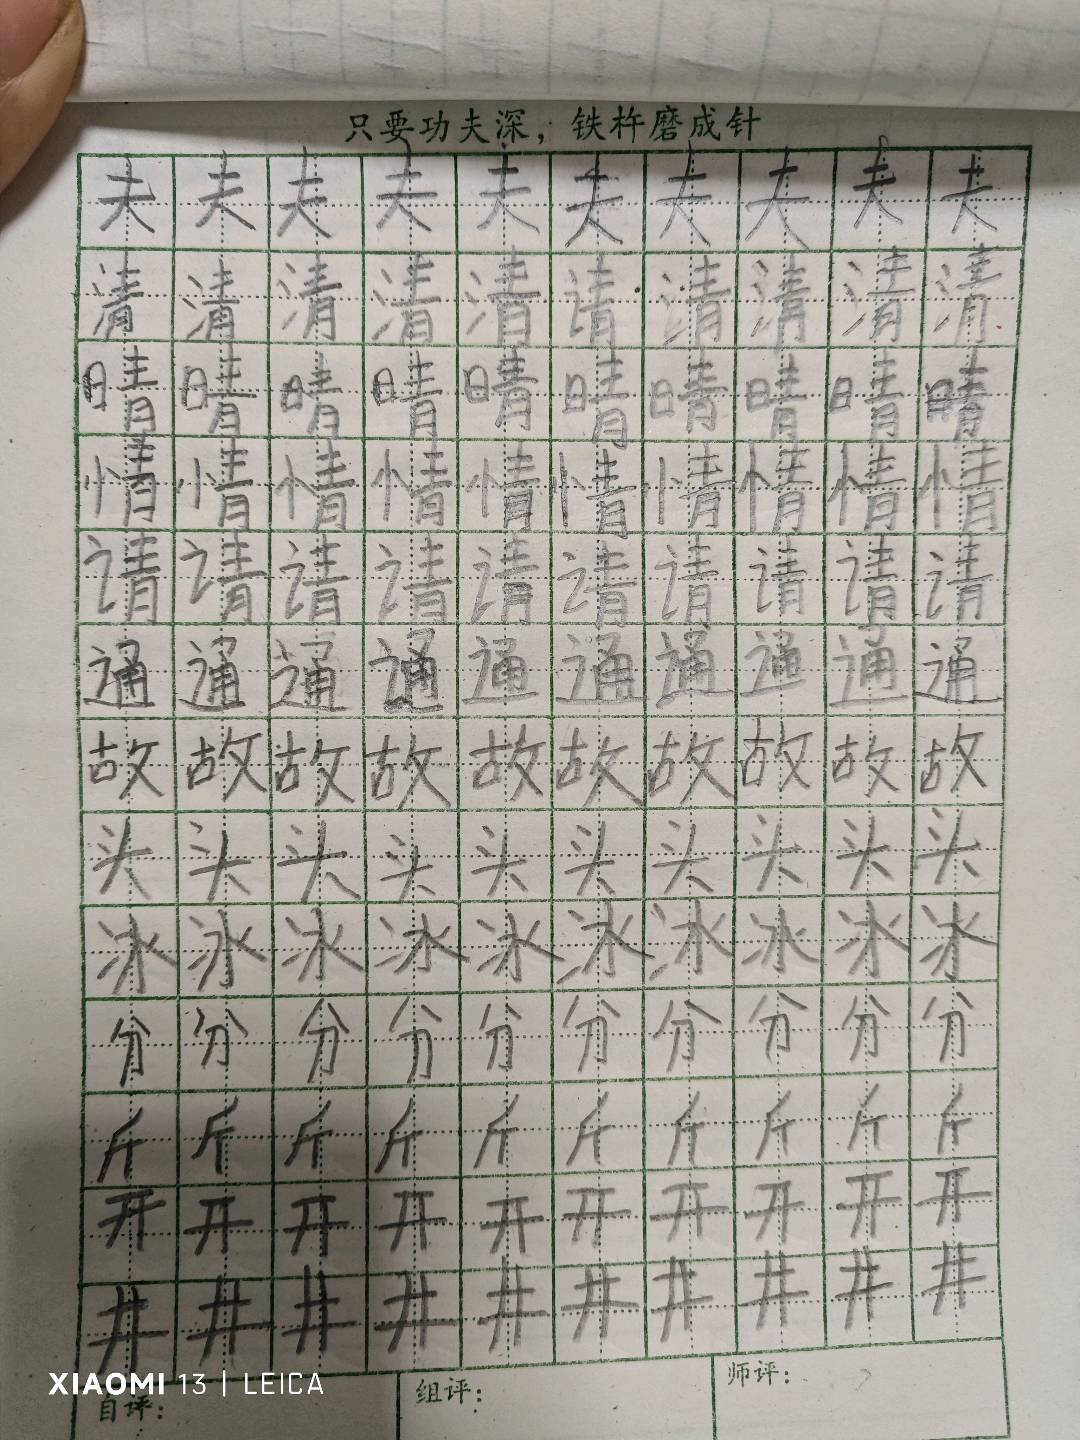 只要功夫深，铁杵磨成针
夫夫夫夫夫夫夫夫夫夫
清清清清清请清清清清
晴晴晴晴晴晴晴晴晴晴
情情情情情情情情情情
请请请请请请请请请请
通通通通通通通通通通
故故故故故故故故故故
头头头头头头头头头头
冰冰冰冰冰冰冰冰冰冰
分分分分分分分分分分
斤斤斤斤斤斤斤斤斤斤
开开开开开开开开开开
井井井井井井井井井井
自评： 组评： 师评：
XIAOMI 13 | LEICA